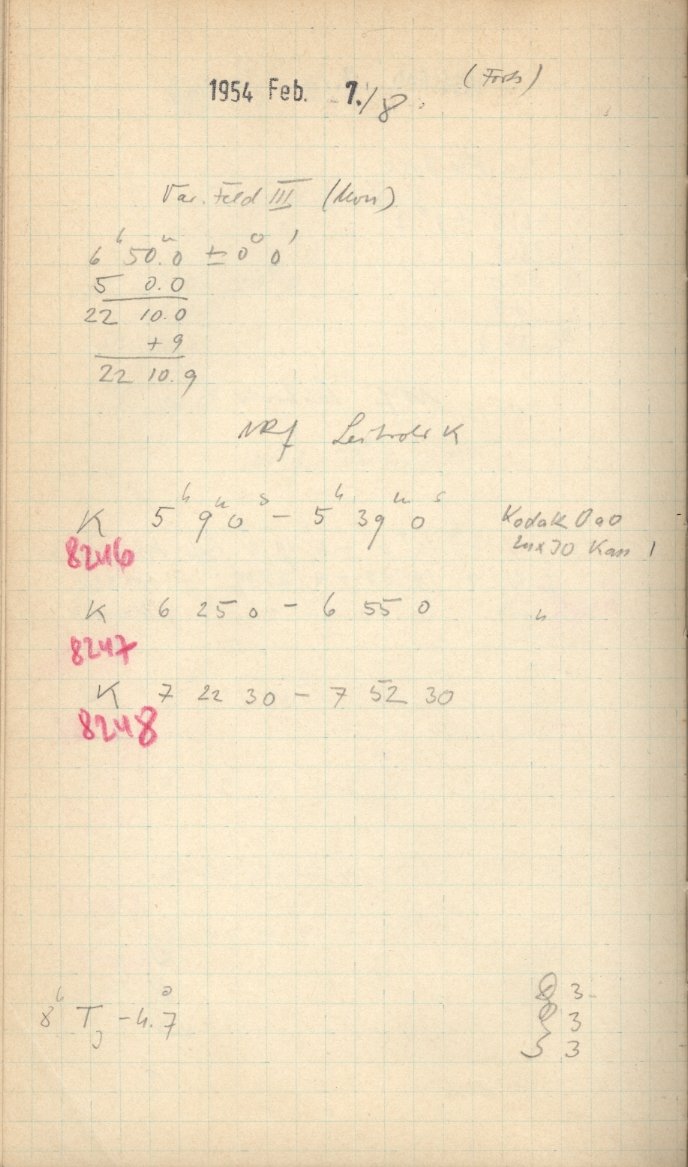 1954 Feb. 7./8. (Forts)
Var. Feld III (Mon)
6ʰ 50.ᵐ0 ± 0° 0'
5 0.0
22 10.0
+ 9
22 10.9
Leitrohr K
K 5ʰ 9ᵐ 0ˢ – 5ʰ 39ᵐ 0ˢ Kodak 0a0
8246
K 6 25 0 – 6 55 0 "
8247
K 7 22 30 – 7 52 30
8248
8ʰ T – 4.°7
3
3
S 3